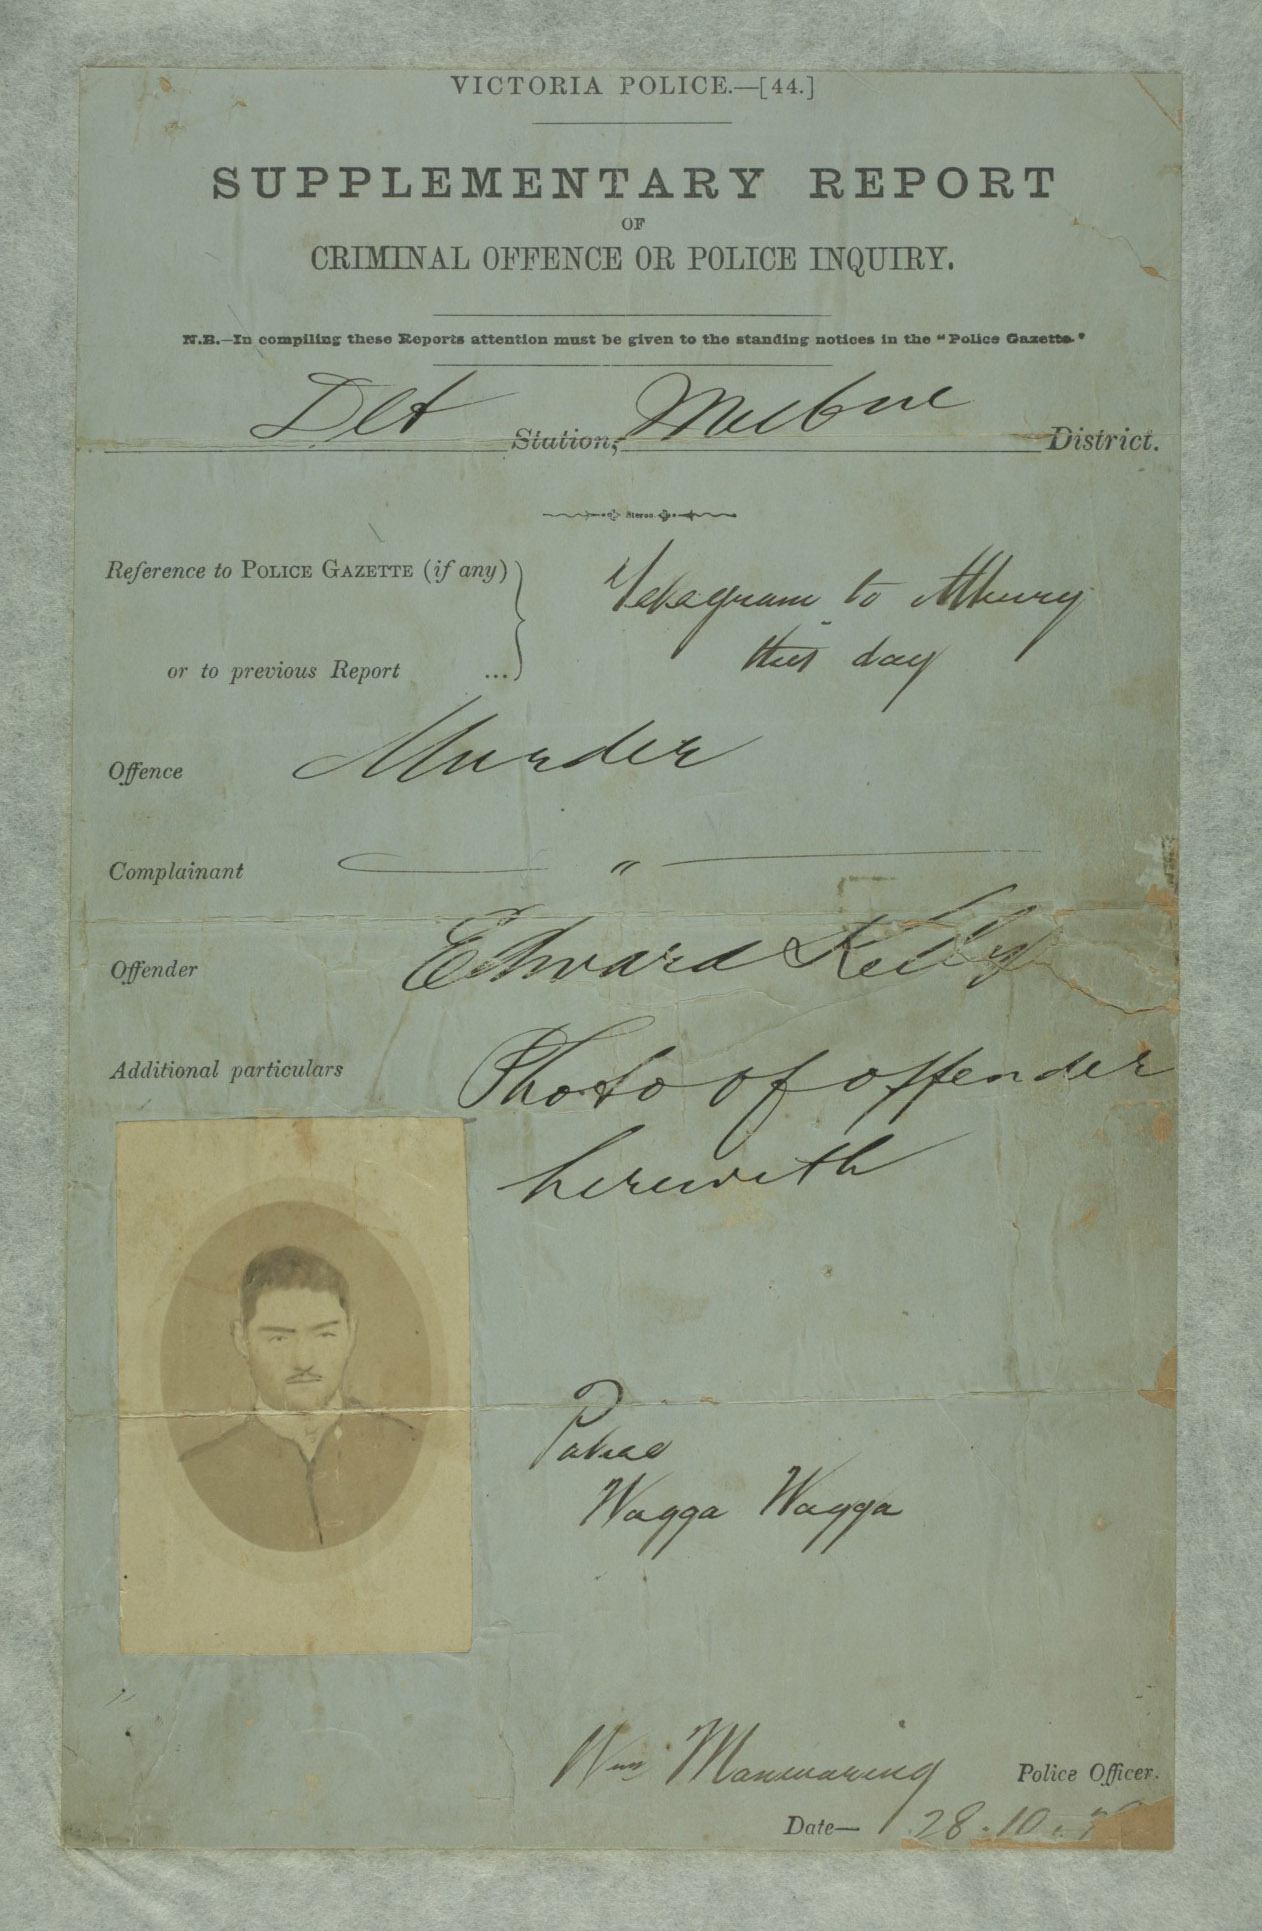 VICTORIA POLICE.—[44.]
SUPPLEMENTARY REPORT
OF
CRIMINAL OFFENCE OR POLICE INQUIRY.
N.B.—In compiling these Reports attention must be given to the standing notices in the "Police Gazette."
Det Station, Melbne District.
Stereo.
Reference to POLICE GAZETTE (if any)
Telegram to Albury
this day
or to previous Report ...
Offence Murder
Complainant "
Offender Edward Kelly
Additional particulars Photo of offender
herewith
Police
Wagga Wagga
Wm Manwaring Police Officer.
Date— 28.10.